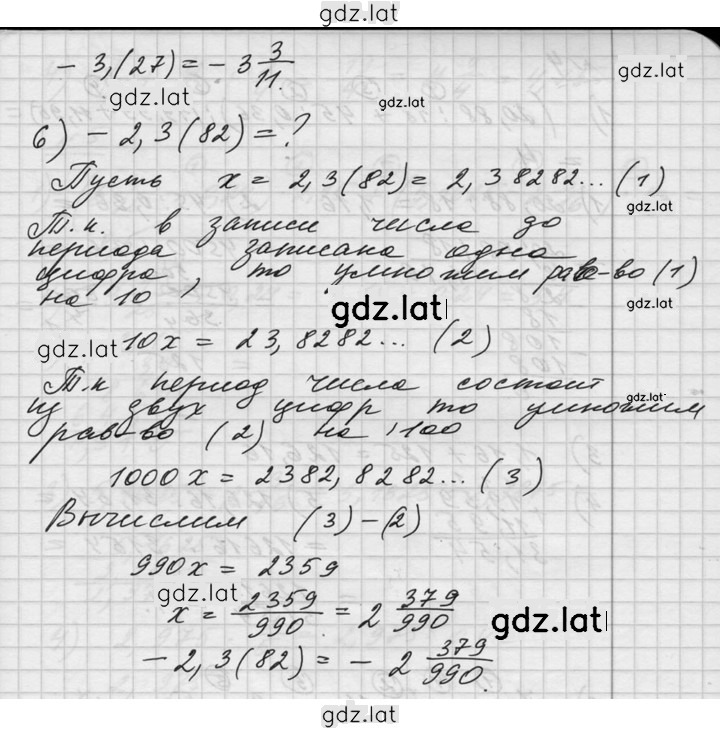 gdz.lat
- 3,(27) = - 3 3/11.
gdz.lat
gdz.lat
gdz.lat
6) - 2,3(82) = ?
Пусть x = 2,3(82) = 2,38282... (1)
gdz.lat
Т.к. в записи числа до
периода записана одна
цифра, то умножим рав-во (1)
на 10
gdz.lat
gdz.lat 10x = 23,8282... (2)
Т.к период числа состоит
из двух цифр то умножим
gdz.lat
рав-во (2) на 100
1000x = 2382,8282... (3)
Вычислим (3)-(2)
990x = 2359
gdz.lat
x = 2359/990 = 2 379/990
gdz.lat
- 2,3(82) = - 2 379/990.
gdz.lat